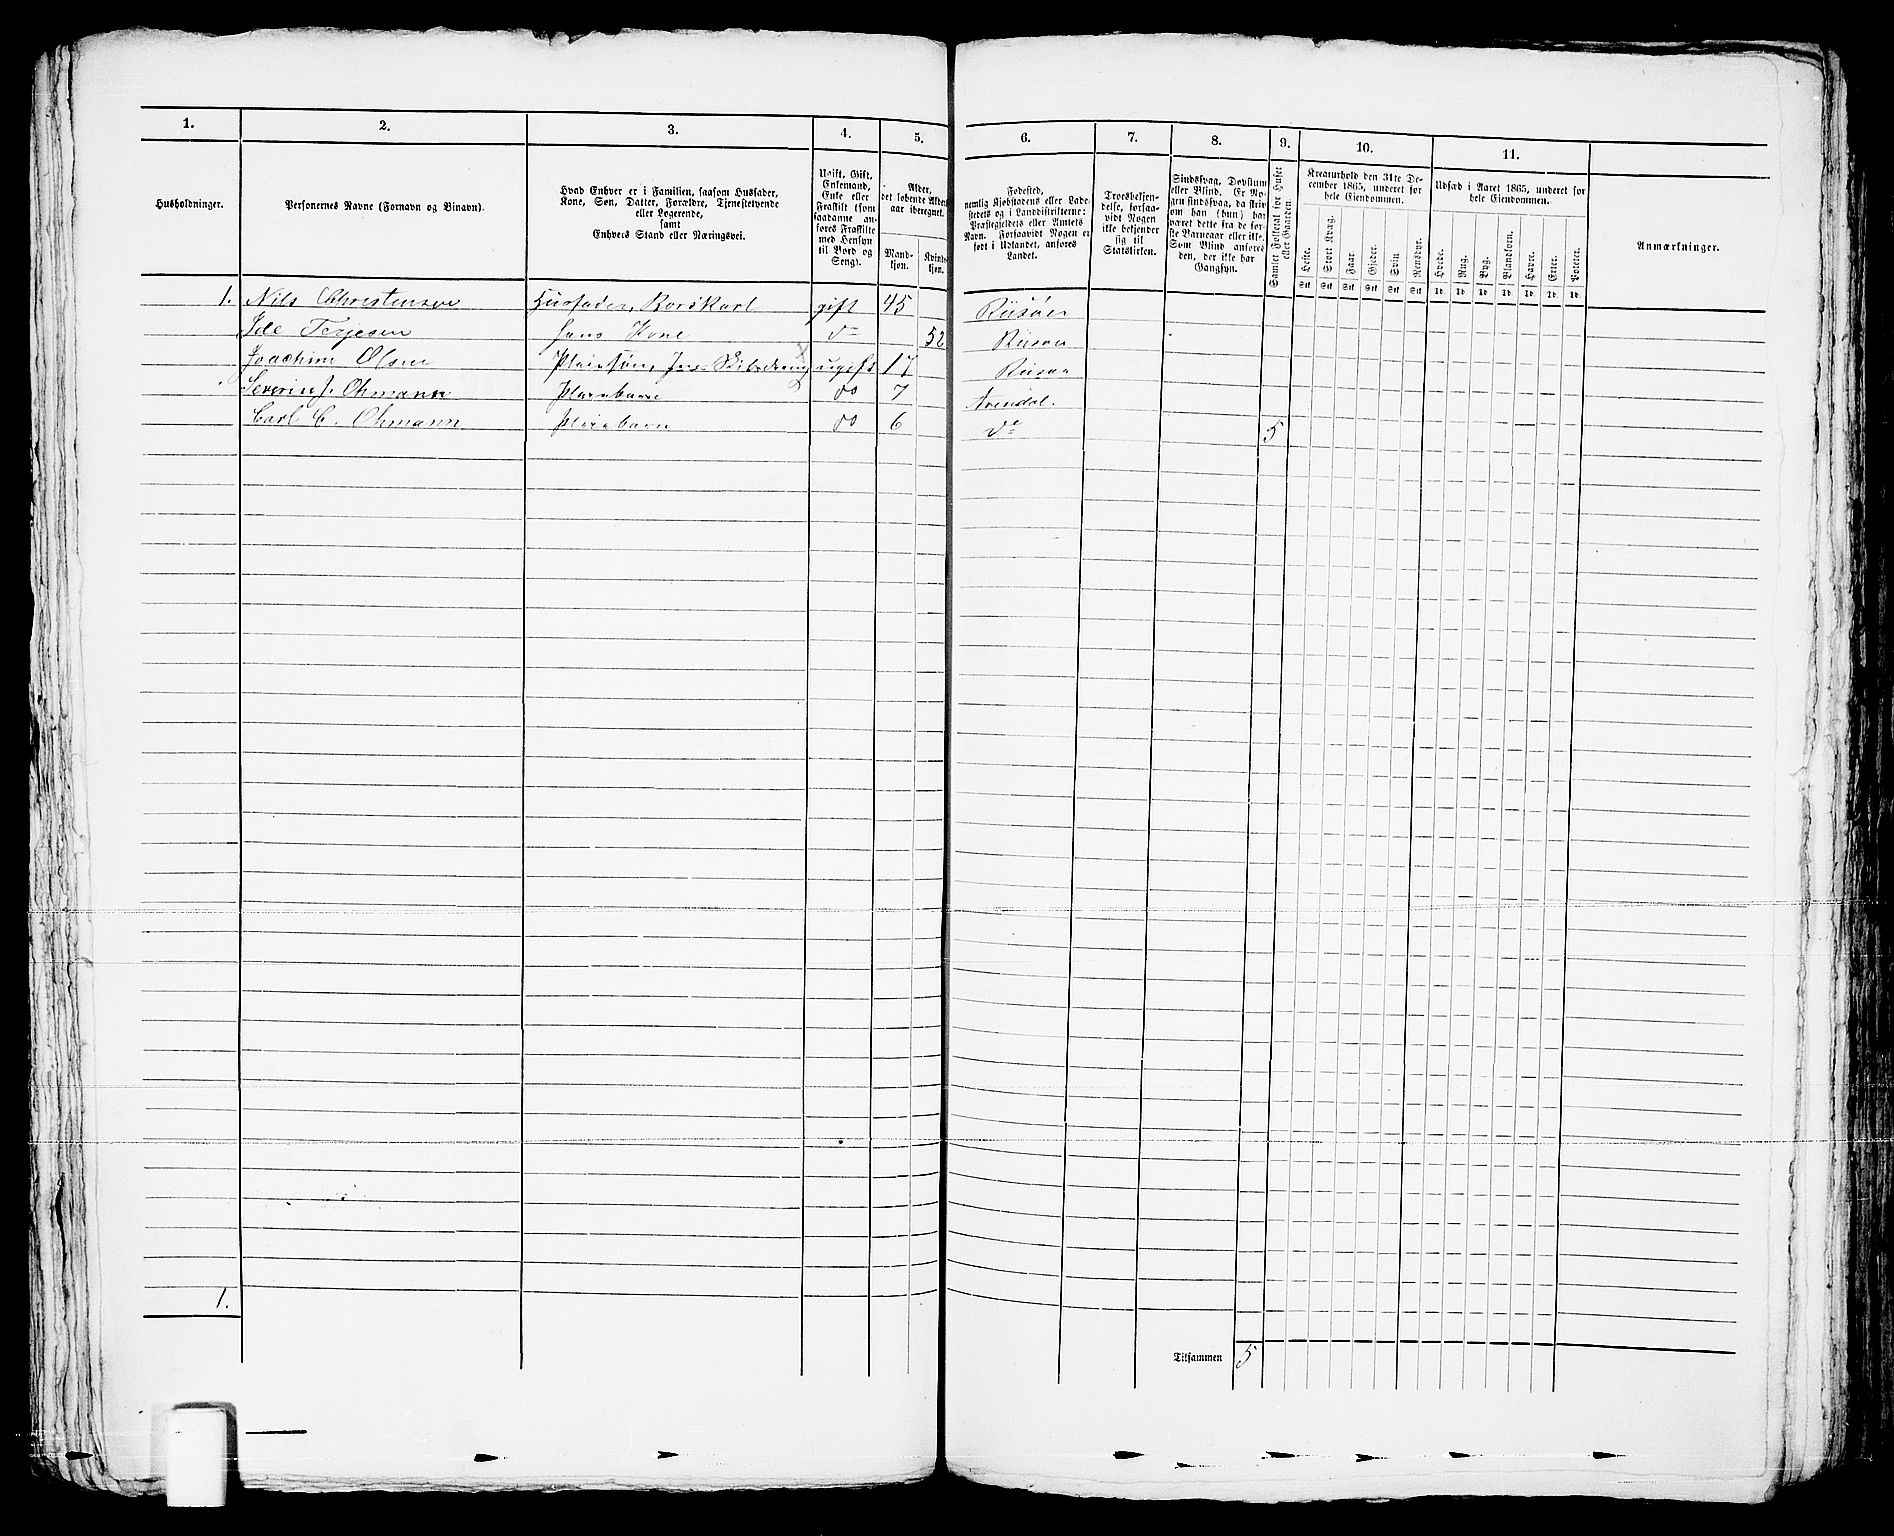 1.
2.
3.
4.
5.
Husholdninger.
Personernes Navne (Fornavn og Binavn).
Hvad Enhver er i Familien, saasom Husfader,
Kone, Søn, Datter, Forældre, Tjenestetyende
eller Logerende,
samt
Enhvers Stand eller Næringsvei.
Ugift, Gift,
Enkemand,
Enke eller
Fraskilt (som
saadanne an-
føres Fraskilte
med Hensyn
til Bord og
Seng).
Alder,
det løbende Alders-
aar iberegnet.
Mand-
kjøn.
Kvinde-
kjøn.
6.
7.
8.
9.
10.
11.
Fødested,
nemlig Kjøbstadens eller Lade-
stedets og i Landdistrikterne:
Præstegjeldets eller Amtets
Navn. Forsaavidt Nogen er
født i Udlandet, anføres
Landet.
Troesbekjen-
delse, forsaa-
vidt Nogen
ikke bekjender
sig til
Statskirken.
Sindssvag, Døvstum
eller Blind. Er No-
gen sindssvag, da skriv
om han (hun) har
været dette fra de før-
ste Barneaar eller ikke.
Som Blind anføres
den, der ikke har
Gangsyn.
Samlet Folketal for Huset
eller Gaarden.
Kreaturhold den 31te De-
cember 1865, underet for
hele Eiendommen.
Heste.
Stort Kvæg.
Faar.
Gjeder.
Svin.
Rensdyr.
Stk Stk Stk Stk Stk Stk
Udsæd i Aaret 1865, underet for
hele Eiendommen.
Hvede.
Rug.
Byg.
Blandkorn.
Havre.
Erter.
Poteter.
Td. Td. Td. Td. Td. Td. Td.
Anmærkninger.
1. Nils Christensen Husfader, Borskarl gift 45 Riisøer
Ide Terjesen hans Kone do 52 Riisøer
Joachim Olsen Pleiesøn, ugift 17 Riisøer
Severin J. Ohmann Pleiebarn do 7 Arendal.
Carl C. Ohmann Pleiebarn do 6 do 5
1.
Tilsammen 5